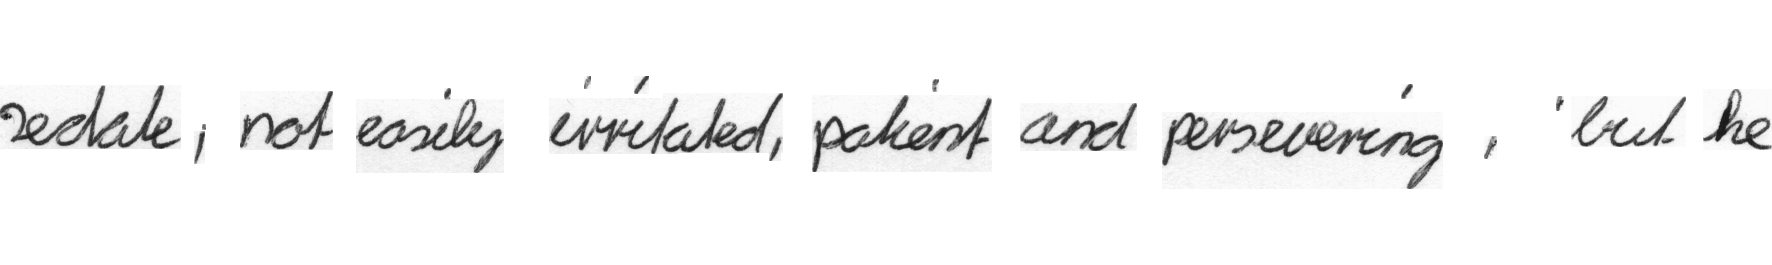 sedate, not easily irritated, patient and persevering, 'but he